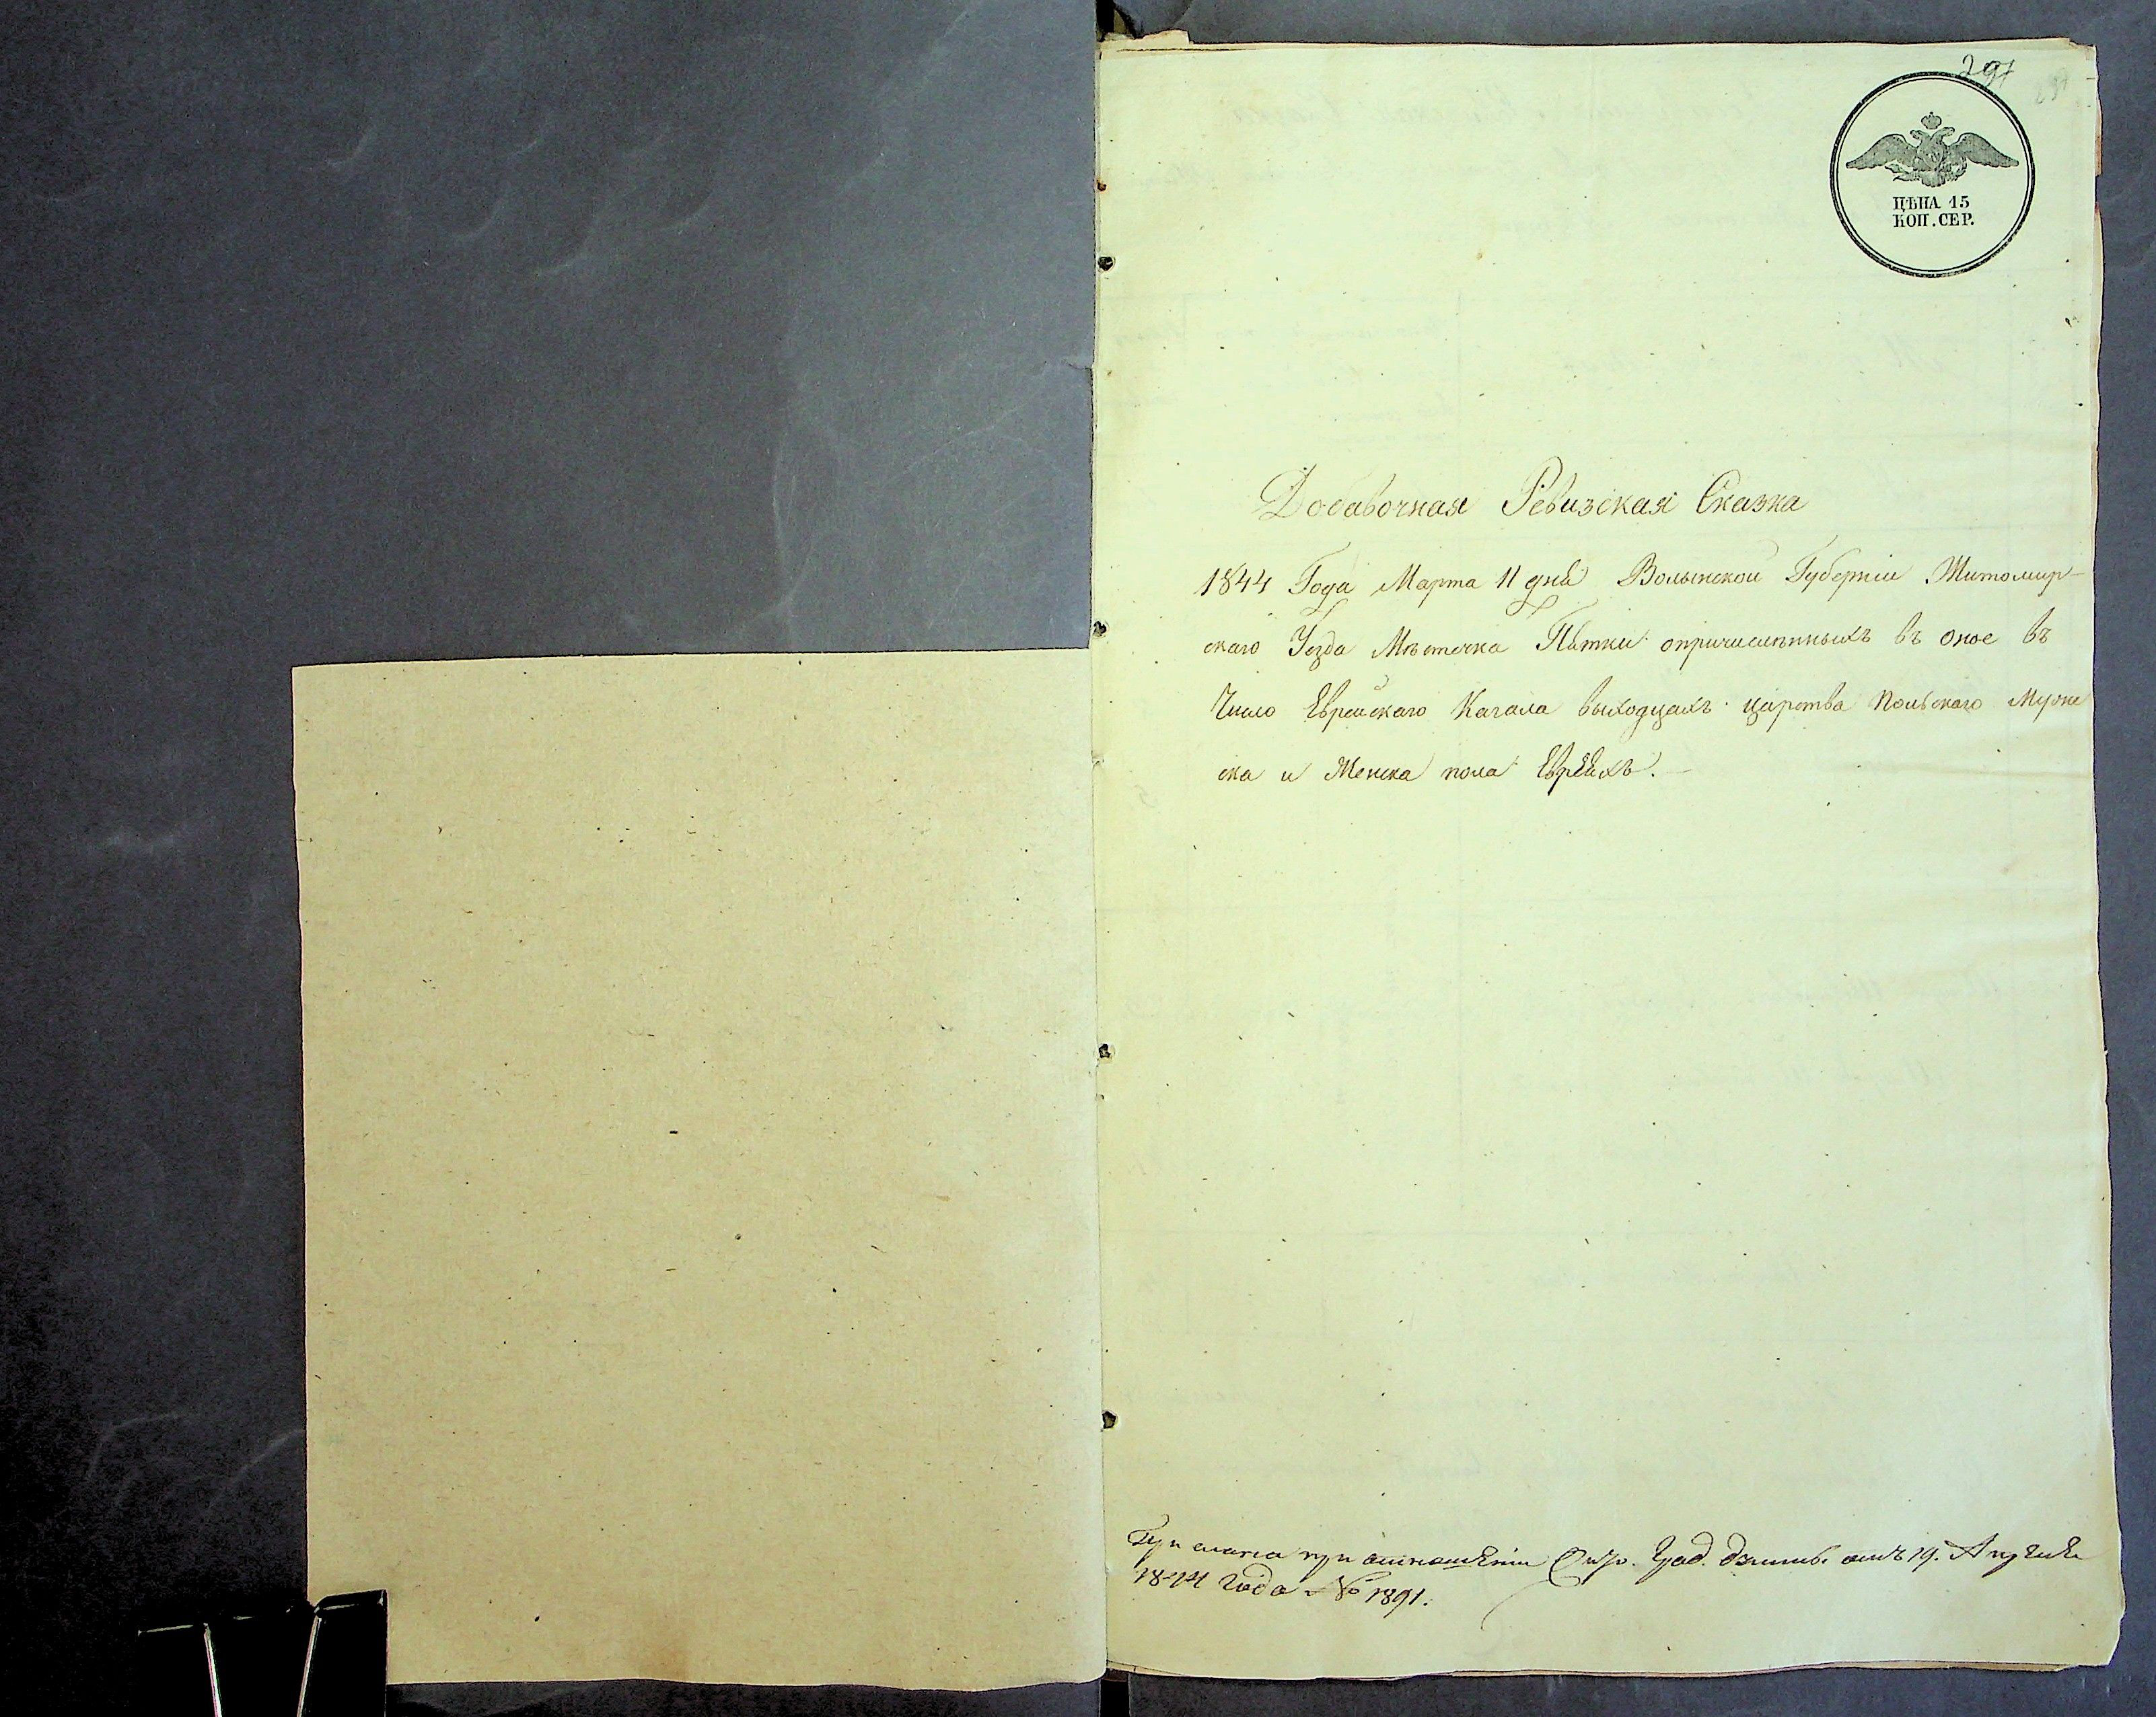 297
ЦѢНА 15
КОП. СЕР.
Добавочная Ревизская Сказка
1844 Года Марта 11 дня Волынской Губерніи Житомир-
скаго Уезда Мѣстечка Пятки опричисленныхъ въ оное въ
Число Еврейскаго Кагала выходцахъ царства Польскаго Муже
ска и Женска пола Евреяхъ.
при отношеніи отъ 19. Апреля
1844 года № 1891.